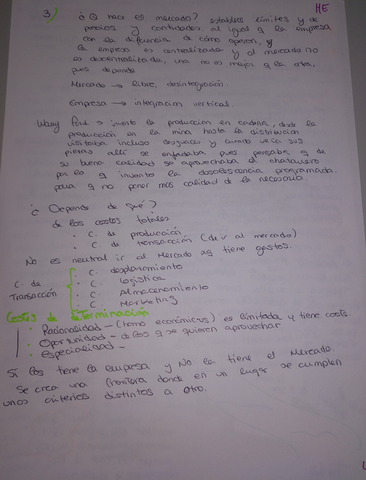 HE
3) ¿Q hace el mercado? establece límites y de
precios y cantidades al igual q la empresa
con la diferencia de cómo operan, y
la empresa es centralizada y el mercado no
es descentralizado, una no es mejor q la otra,
pues depende
Mercado → libre, desintegración
Empresa → integración vertical.
Ford → invento la produccion en cadena, desde la
producción en la mina hasta la distribución
visitaba incluso y cuando veía sus
piezas allí se enfadaba pues pensaba q de
su buena calidad se aprovechaba el chatarrero
por lo q invento la obsolescencia programada.
para q no poner más calidad de la necesario.
¿ Depende de qué?
de los costos totales
• C. de producción
• C. de transacción (de ir al mercado)
No es neutral ir al Mercado xq tiene gastos.
C. de
Transacción
• C. desplazamiento
• C. logística
• C. Almacenamiento
• C. Marketing
Costes de determinación
• Racionalidad - (homo económicus) es limitada y tiene coste
• Oportunidad - de los q se quieren aprovechar
• Especialidad -
Si los tiene la empresa y No la tiene el Mercado.
Se crea una frontera donde en un lugar se cumplen
unos criterios distintos a otro.